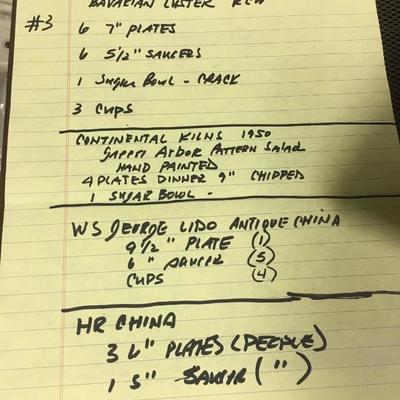 BAVARIAN LUSTER RCW
#3
6 7" PLATES
6 5 1/2" SAUCERS
1 Sugar Bowl - CRACK
3 Cups
CONTINENTAL KILNS 1950
Green Arbor Pattern Salad
HAND PAINTED
4 PLATES DINNER 9" CHIPPED
1 SUGAR BOWL -
WS GEORGE LIDO ANTIQUE CHINA
9 1/2" PLATE (1)
6" SAUCER (5)
CUPS (4)
HR CHINA
3 6" PLATES (PEOPLE)
1 5" SAUCER (")